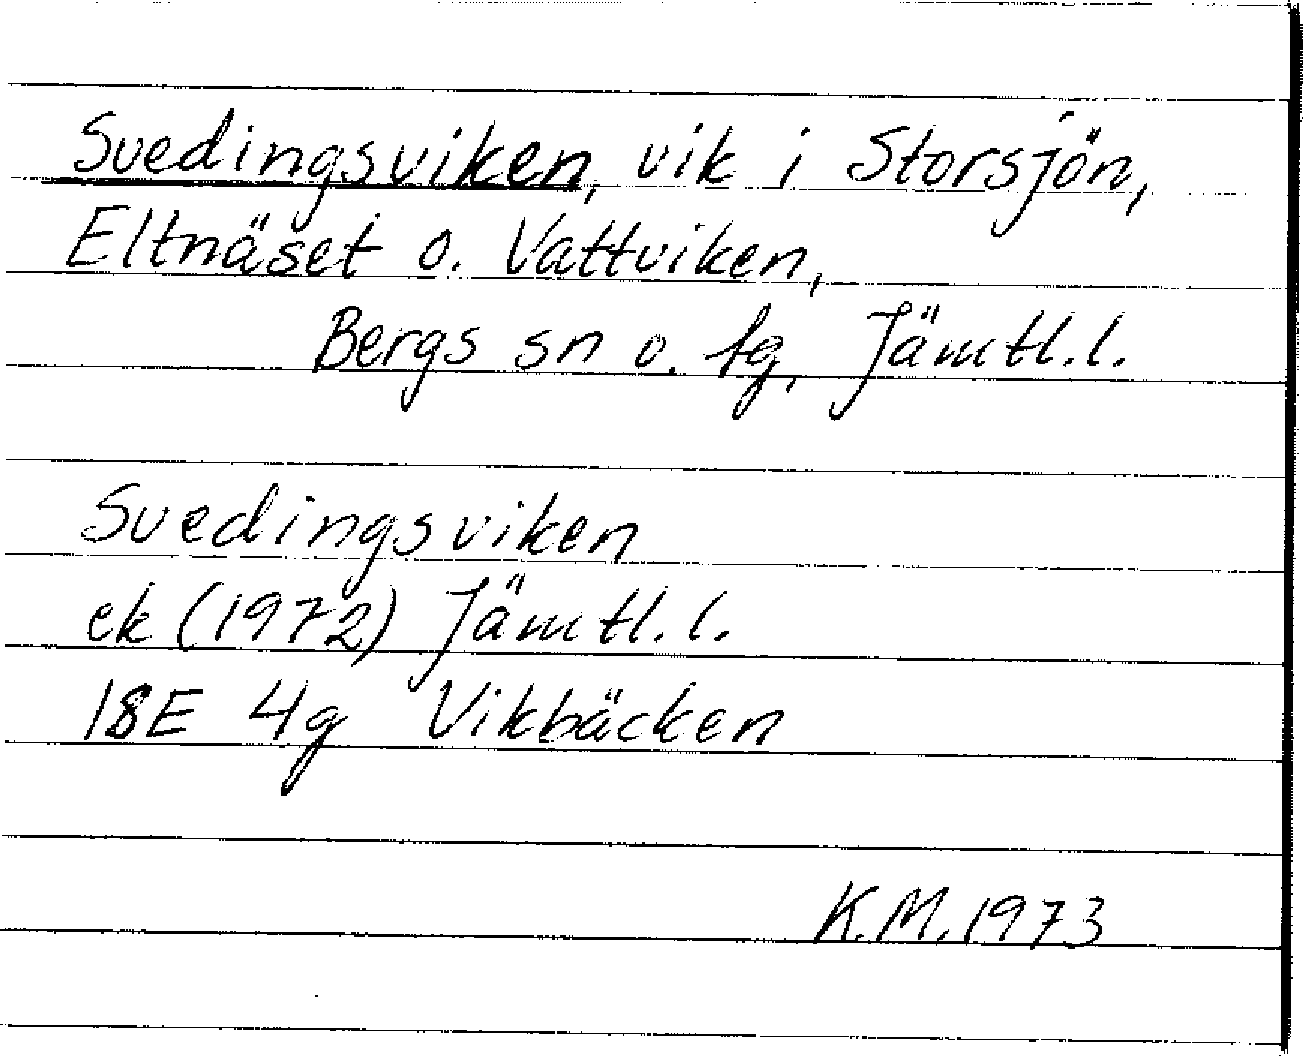 Svedingsviken, vik i Storsjön,
Eltnäset o. Vattviken,
Bergs sn o. tg, Jämtl.l.
Svedingsviken
ek (1972) Jämtl.l.
18E 4g Vikbäcken
K.M. 1973